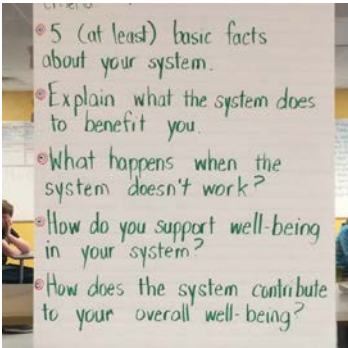 5 (at least) basic facts
about your system.
Explain what the system does
to benefit you.
What happens when the
system doesn't work?
How do you support well-being
in your system?
How does the system contribute
to your overall well-being?